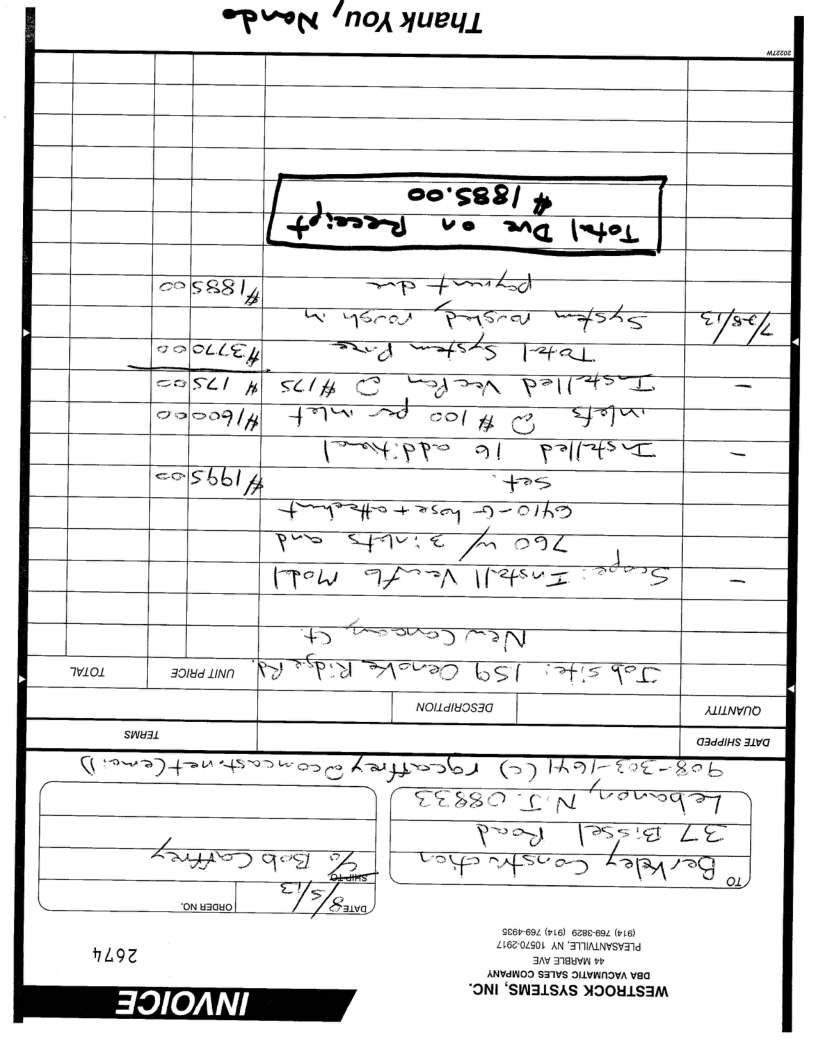 INVOICE
WESTROCK SYSTEMS, INC.
DBA VACUMATIC SALES COMPANY
44 MARBLE AVE
PLEASANTVILLE, NY 10570-2917
(914) 769-3829 (914) 769-4935
2674
DATE 8/5/13
ORDER NO.
TO
Berkeley Construction
37 Bissel Road
Lebanon, N.J. 08833
SHIP TO
c/o Bob Caffrey
908-303-1641 (c) rgcaffrey@comcast.net (email)
DATE SHIPPED TERMS
QUANTITY DESCRIPTION UNIT PRICE TOTAL
Job site: 159 Oenoke Ridge Rd.
New Canaan, Ct.
- Scope: Install Vacuflo Model
760 w/ 3 inlets and
6410-G hose + attachment
set. $1995 00
- Installed 16 additional
inlets @ $100 per inlet $1600 00
- Installed VacPan @ $175 $175 00
Total System Price $3770 00
7/28/13 System roughed, rough in
payment due $1885 00
Total Due on Receipt
$1885.00
20227W
Thank You, Nando